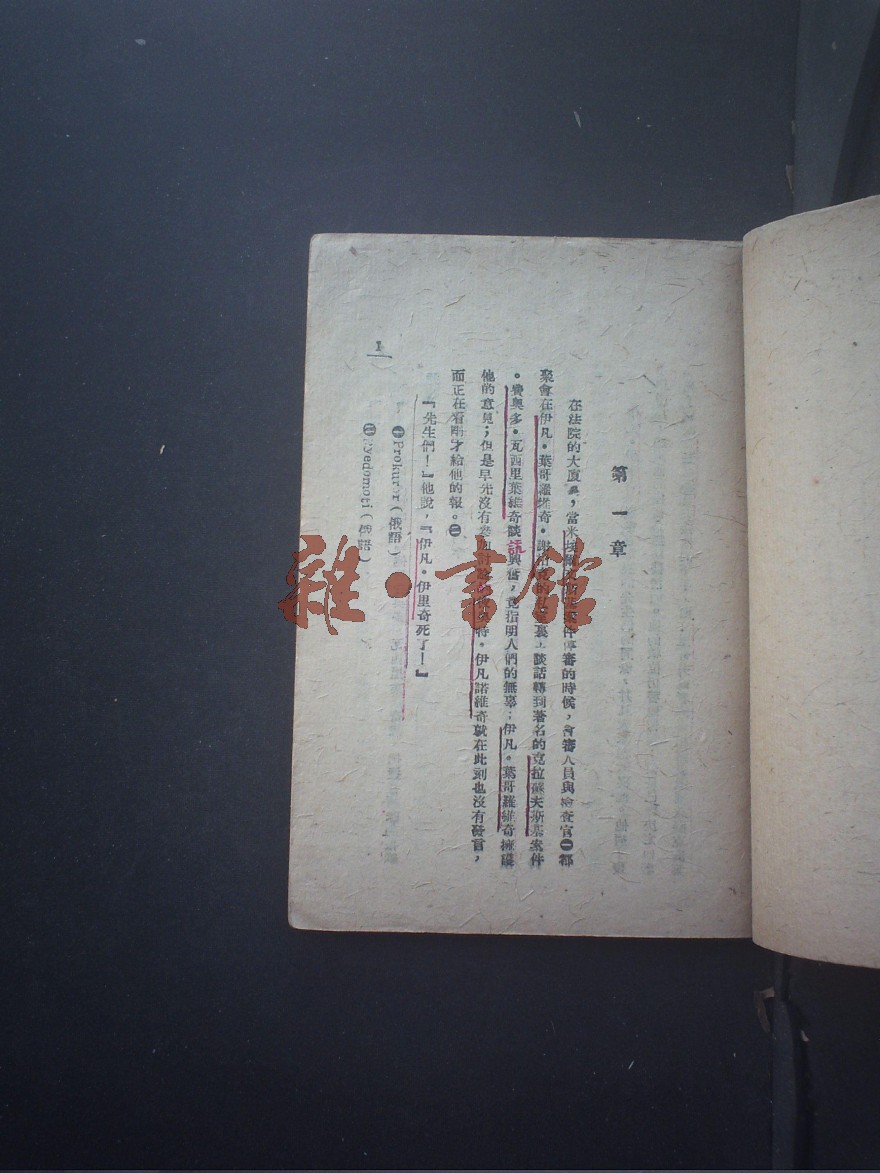 第一章
在法院的大廈裏，當米埃爾文斯基案件停審的時候，會審人員與檢查官㊀都
聚會在伊凡·葉哥羅維奇·謝 的 室裏，談話轉到著名的克拉蘇夫斯基案件
·費奧多·瓦西里葉維奇談話興奮，竟指明人們的無辜；伊凡。葉哥羅維奇擁護
他的意見；但是早先沒有參 討 彼特·伊凡諾維奇就在此刻也沒有發言，
而正在看剛才給他的報。㊁
『先生們！』他說，『伊凡·伊里奇死了！』
㊀Prokuror（俄語）
㊁Vyedomoti（俄語）
1
雜·書館